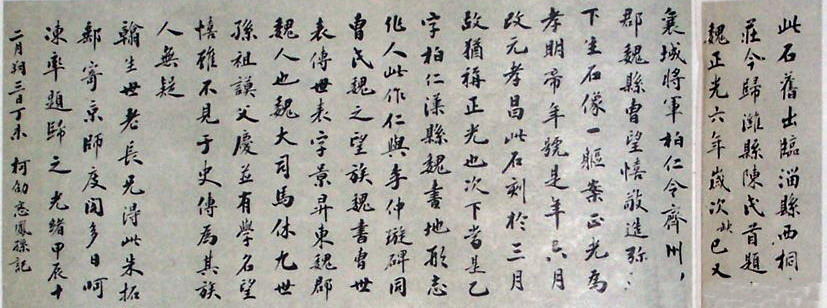 此石舊出臨淄縣西桐
莊今歸濰縣陳氏首題
魏正光六年歲次巳又
襄城將軍柏仁令齊州
郡魏縣曹望憘敬造弥
下生石像一軀案正光為
孝明帝年號是年六月
改元孝昌此石刻於三月
故猶稱正光也次下當是乙
字柏仁漢縣魏書地形志
作人此作仁與李仲璇碑同
曹氏魏之望族魏書曹世
表傳世表字景昇東魏郡
魏人也魏大司馬休九世
孫祖謨父慶並有學名望
憘雖不見于史傳為其族
人無疑
翰生世老長兄得此朱拓
郵寄京師庋閣多日呵
凍率題歸之光緒甲辰十
二月朔三日丁未 柯劭忞鳳孫記